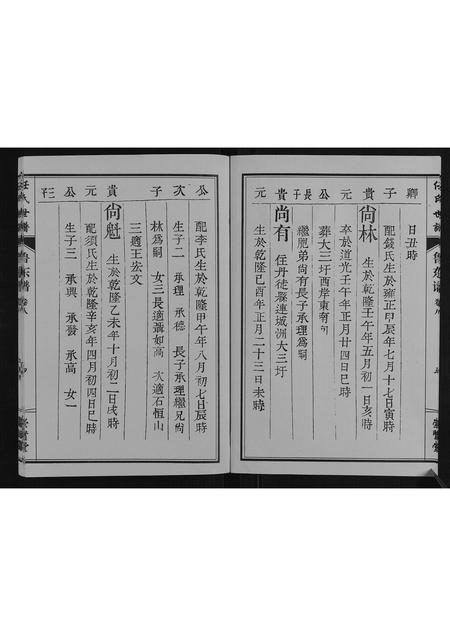 任氏世譜
卿 日丑時
配錢氏生於雍正甲辰年七月十七日寅時
子貴 尚林 生於乾隆壬午年五月初一日亥時
元 卒於道光壬午年正月廿四日巳時
葬大三圩西岸東南向
長子公 繼胞弟尚有長子承理爲嗣
貴 尚有 住丹徒縣連城洲大三圩
元 生於乾隆己酉年正月二十三日未時
公 配李氏生於乾隆甲午年八月初七日辰時
次 生子二 承理 承德 長子承理繼兄尚
子 林爲嗣 女三長適張如高 次適石恒山
三適王宏文
貴 尚魁 生於乾隆乙未年十月初二日戌時
元 配須氏生於乾隆辛亥年四月初四日巳時
公 生子三 承興 承發 承高 女一
三子
任氏世譜